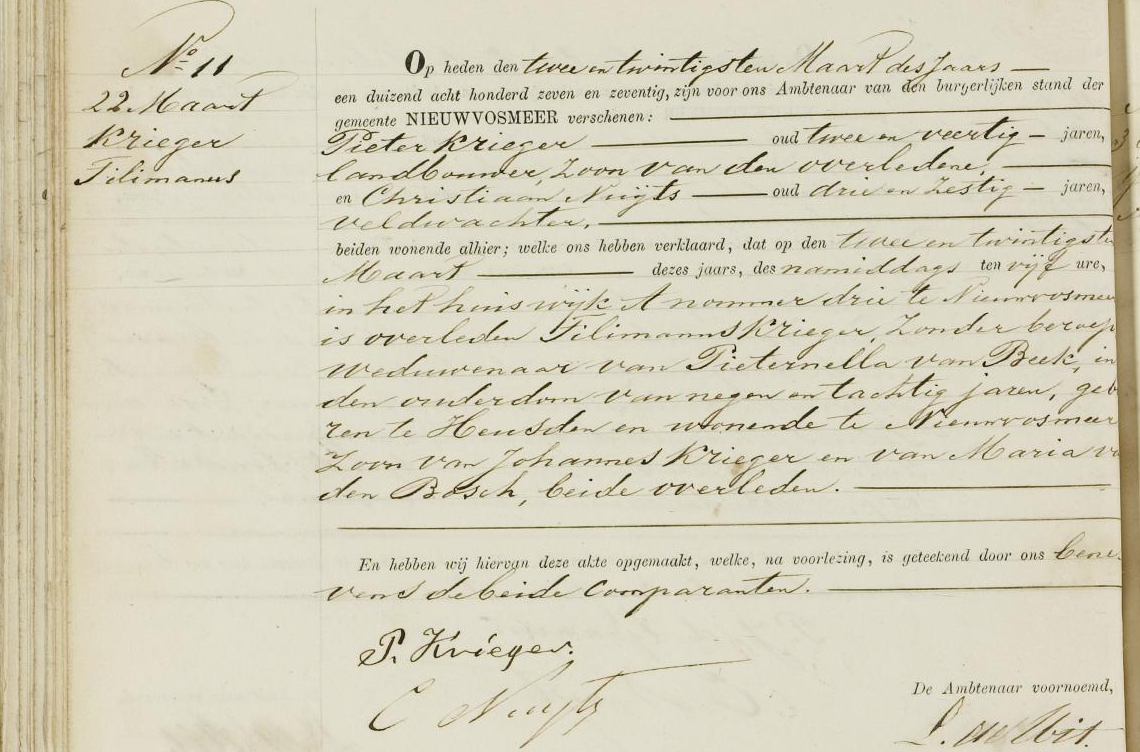 No 11
22 Maart
Krieger
Filimanus
Op heden den twee en twintigsten Maart des Jaars —
een duizend acht honderd zeven en zeventig, zijn voor ons Ambtenaar van den burgerlijken stand der
gemeente NIEUWVOSMEER verschenen: —
Pieter Krieger — oud twee en veertig — jaren,
landbouwer, Zoon van den overledene, —
en Christiaan Nuijts — oud drie en Zestig — jaren,
veldwachter, —
beiden wonende alhier; welke ons hebben verklaard, dat op den twee en twintigste
Maart — dezes jaars, des namiddags ten vijf ure,
in het huis wijk A nommer drie te Nieuwvosmeer
is overleden Filimanus Krieger, Zonder beroep
weduwenaar van Pieternella van Beek, in
den ouderdom van negen en tachtig jaren, geb
ren te Heusden en wonende te Nieuwvosmeer
Zoon van Johannes Krieger en van Maria va
den Bosch, beide overleden. —
En hebben wij hiervan deze akte opgemaakt, welke, na voorlezing, is geteekend door ons bene
vens de beide Comparanten. —
P. Krieger.
C Nuijts
De Ambtenaar voornoemd,